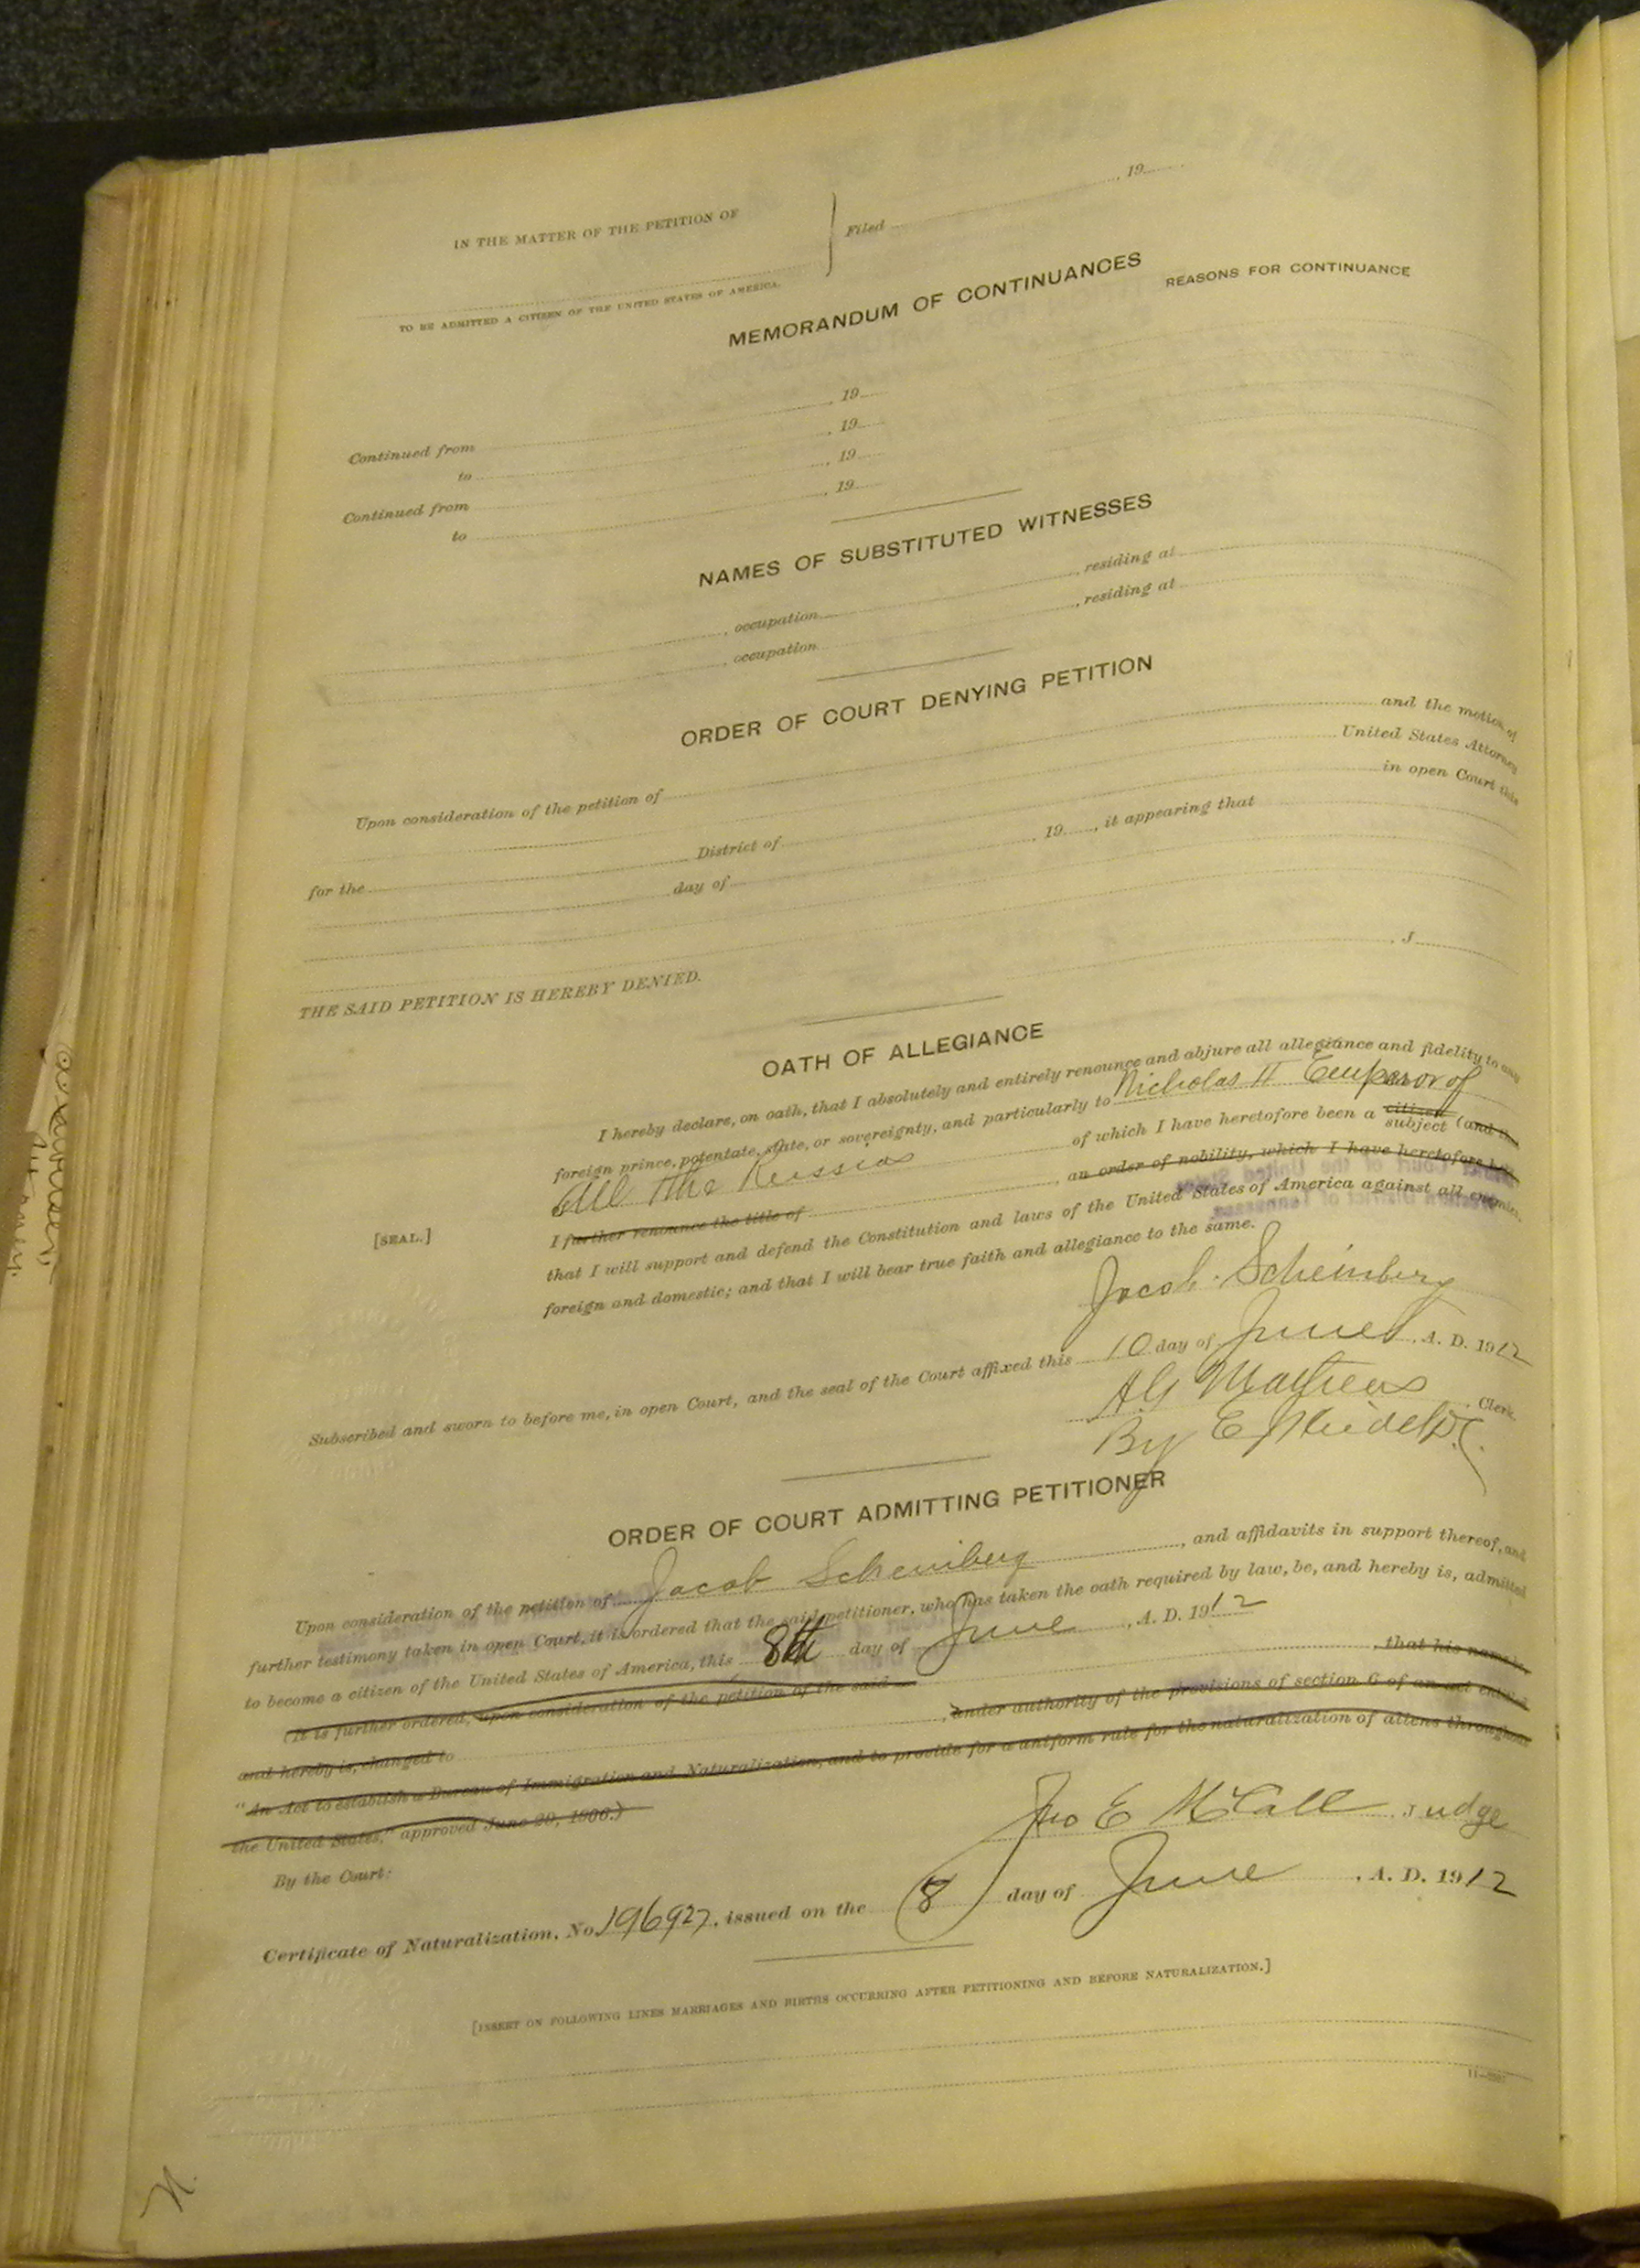 IN THE MATTER OF THE PETITION OF
Filed , 19
TO BE ADMITTED A CITIZEN OF THE UNITED STATES OF AMERICA.
MEMORANDUM OF CONTINUANCES
REASONS FOR CONTINUANCE
Continued from , 19
to , 19
Continued from , 19
to , 19
NAMES OF SUBSTITUTED WITNESSES
, occupation , residing at
, occupation , residing at
ORDER OF COURT DENYING PETITION
Upon consideration of the petition of and the motion of
United States Attorney
for the District of in open Court this
day of , 19 , it appearing that
THE SAID PETITION IS HEREBY DENIED.
, J
OATH OF ALLEGIANCE
I hereby declare, on oath, that I absolutely and entirely renounce and abjure all allegiance and fidelity to any
foreign prince, potentate, state, or sovereignty, and particularly to Nicholas II Emperor of
All the Russias of which I have heretofore been a citizen subject (and the
I further renounce the title of , an order of nobility, which I have heretofore
[SEAL.]
that I will support and defend the Constitution and laws of the United States of America against all enemies,
foreign and domestic; and that I will bear true faith and allegiance to the same.
Jacob Scheinberg
Subscribed and sworn to before me, in open Court, and the seal of the Court affixed this 10 day of June , A. D. 1912
, Clerk.
By
ORDER OF COURT ADMITTING PETITIONER
Upon consideration of the petition of Jacob Scheinberg , and affidavits in support thereof, and
further testimony taken in open Court, it is ordered that the said petitioner, who has taken the oath required by law, be, and hereby is, admitted
to become a citizen of the United States of America, this 8th day of June , A. D. 1912
(It is further ordered, upon consideration of the petition of the said , that his name be,
and hereby is, changed to , under authority of the provisions of section 6 of an act entitled
"An Act to establish a Bureau of Immigration and Naturalization, and to provide for a uniform rule for the naturalization of aliens throughout
the United States," approved June 29, 1906.)
By the Court:
Jno E McCall Judge
Certificate of Naturalization, No 196927, issued on the 8 day of June , A. D. 1912
[INSERT ON FOLLOWING LINES MARRIAGES AND BIRTHS OCCURRING AFTER PETITIONING AND BEFORE NATURALIZATION.]